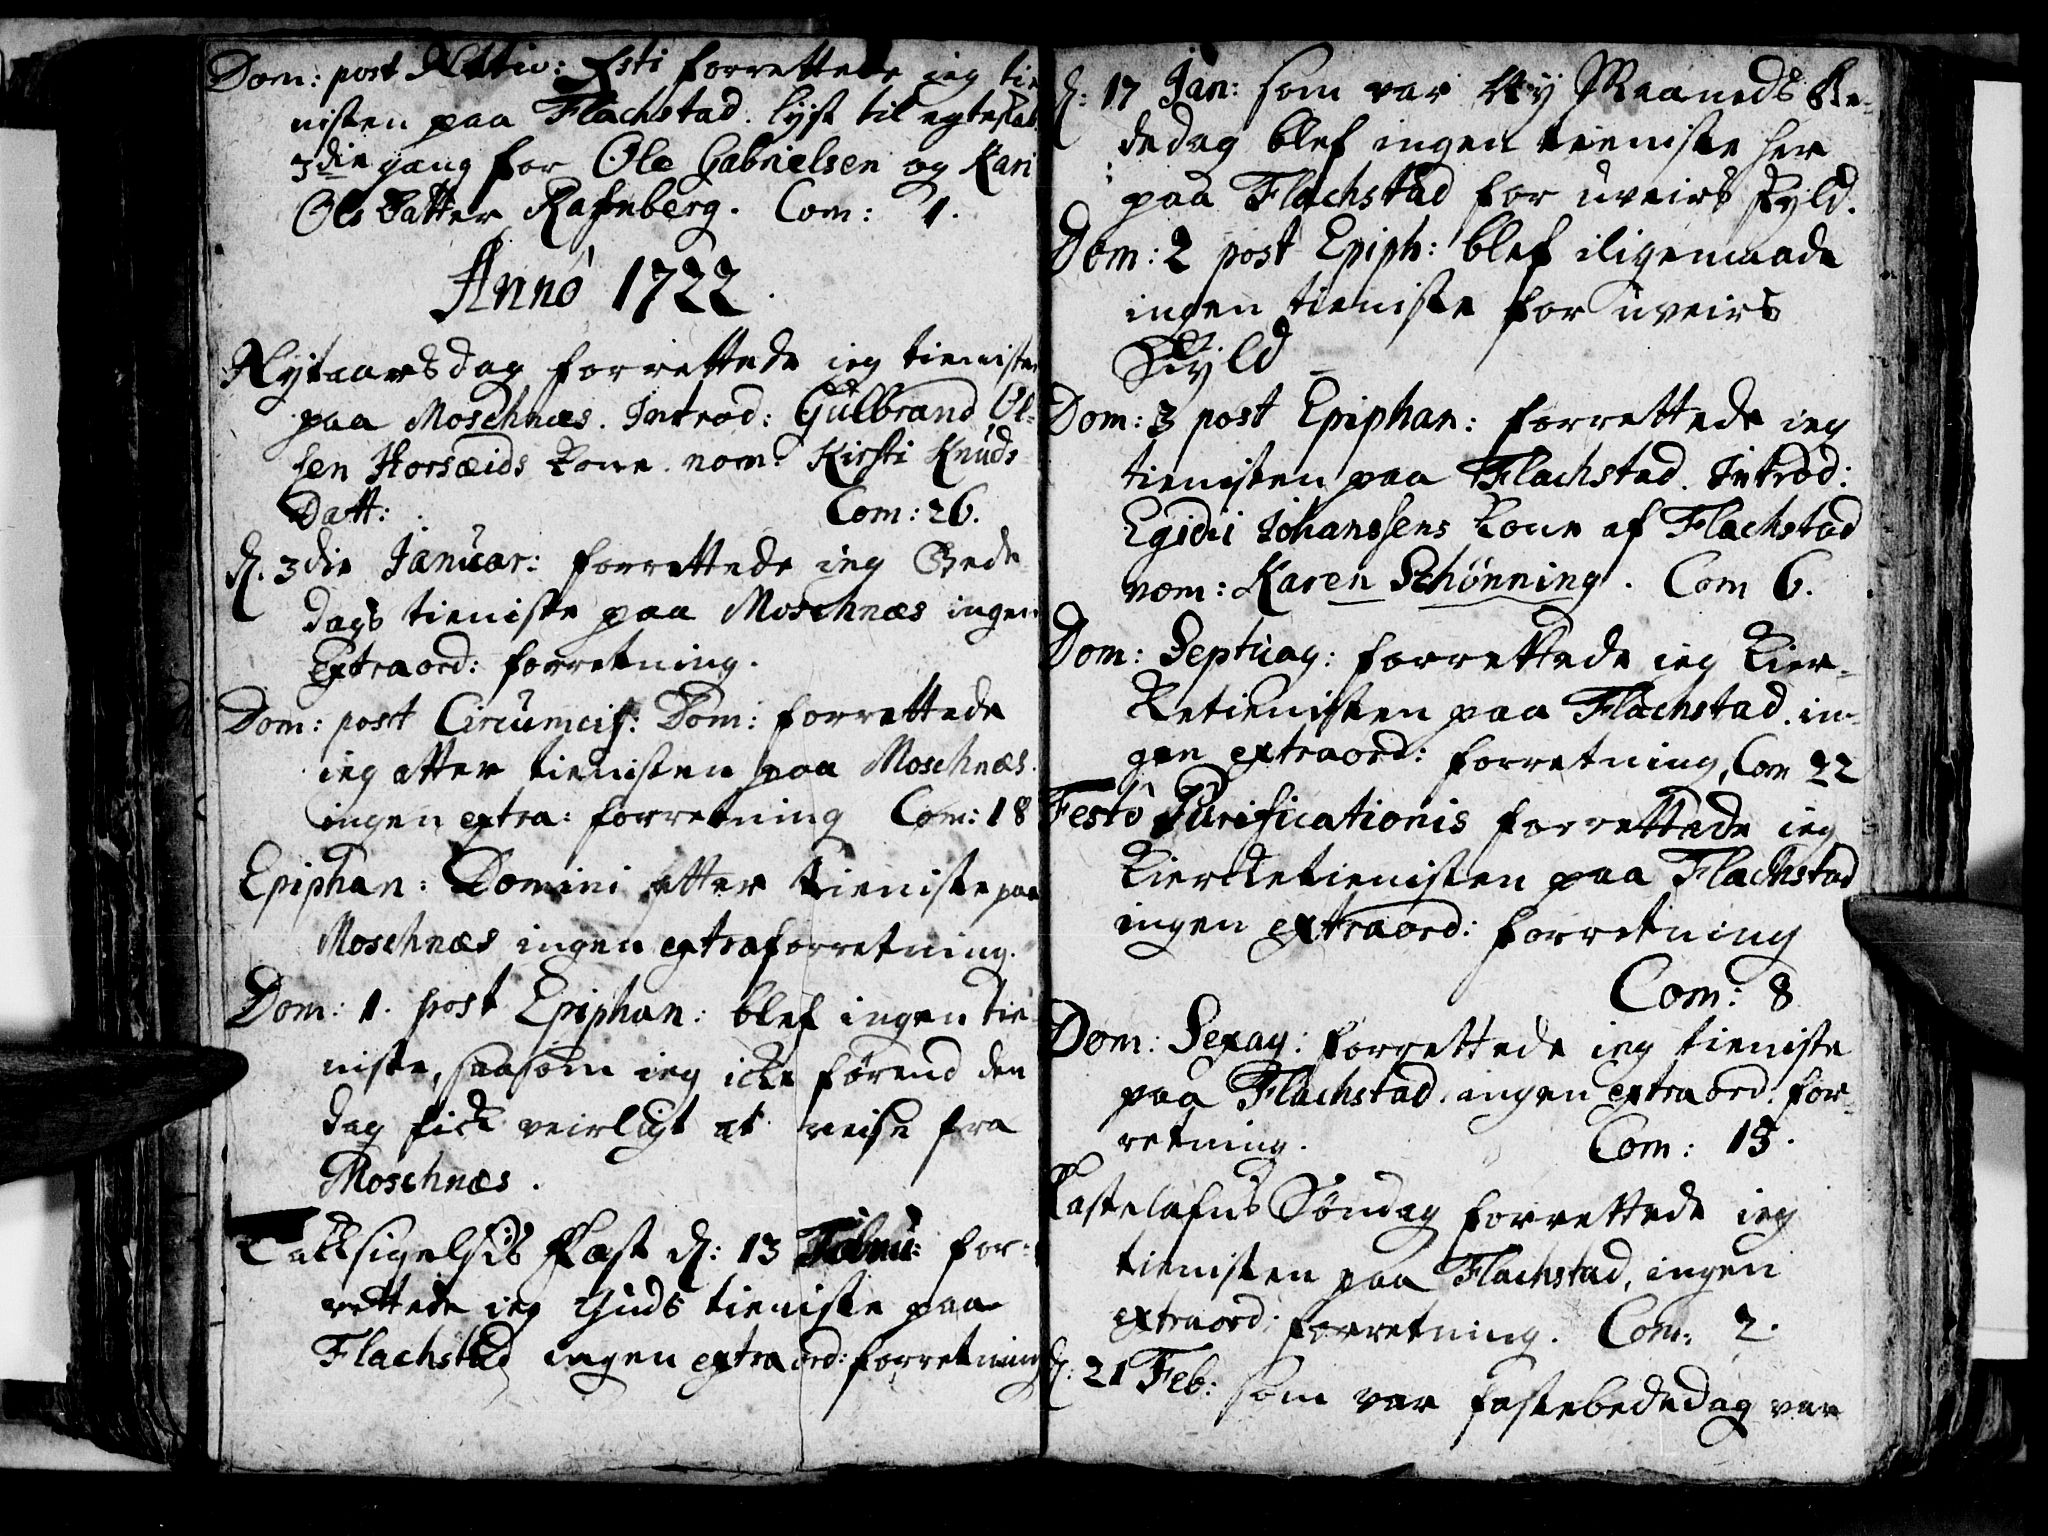 Dom: post Nativ: Xsti forrettede ieg tie
nisten paa Flachstad. lyst til egteskab
3die gang for Ole Gabrielsen og Kari
Ols Datter Rafnberg. Com: 1.
Anno 1722.
Nytaarsdag forrettede ieg tienisten
paa Moschnæs. Introd: Gulbrand Ol-
sen Horsæids Kone nom: Kirsti Knuds
Datt: Com: 26.
d. 3die Januar: forrettede ieg Bede
dags tieniste paa Moschnæs ingen
Extraord: forretning.
Dom: post Circumcis: Dom: forrettede
ieg atter tienisten paa Moschnæs.
ingen extra: forretning Com: 18
Epiphan: Domini atter tieniste paa
Moschnæs ingen extraforretning.
Dom: 1. post Epiphan: blef ingen tie-
niste, saasom ieg icke førend den
dag fick veirligt at reise fra
Moschnæs.
Tacksigelsis Fæst d: 13 for-
rettede ieg Guds tieniste paa
Flachstad ingen extraord: forretning
d: 17 Jan: som var Ny Maaneds Be-
dedag blef ingen tieniste her
paa Flachstad for uveirs skyld.
Dom: 2 post Epiph: blef iligemaade
ingen tieniste for uveirs
Skyld
Dom: 3 post Epiphan: forrettede ieg
tienisten paa Flachstad. Introd:
Egidii Johanssens Kone af Flachstad
nom: Karen Schønning. Com 6.
Dom: Septuag: forrettede ieg Kier-
Ketienisten paa Flachstad. in-
gen extraord: forretning, Com 22
Festo Purificationis forrettede ieg
Kierketienisten paa Flachstad
ingen extraord: forretning
Com: 8
Dom: Sexag: forrettede ieg tieniste
paa Flachstad. ingen extraord: for-
retning. Com: 18.
Fastelafns Søndag forrettede ieg
tienisten paa Flachstad, ingen
extraord: forretning. Com: 2.
d: 21 Feb: som var fastebededag var